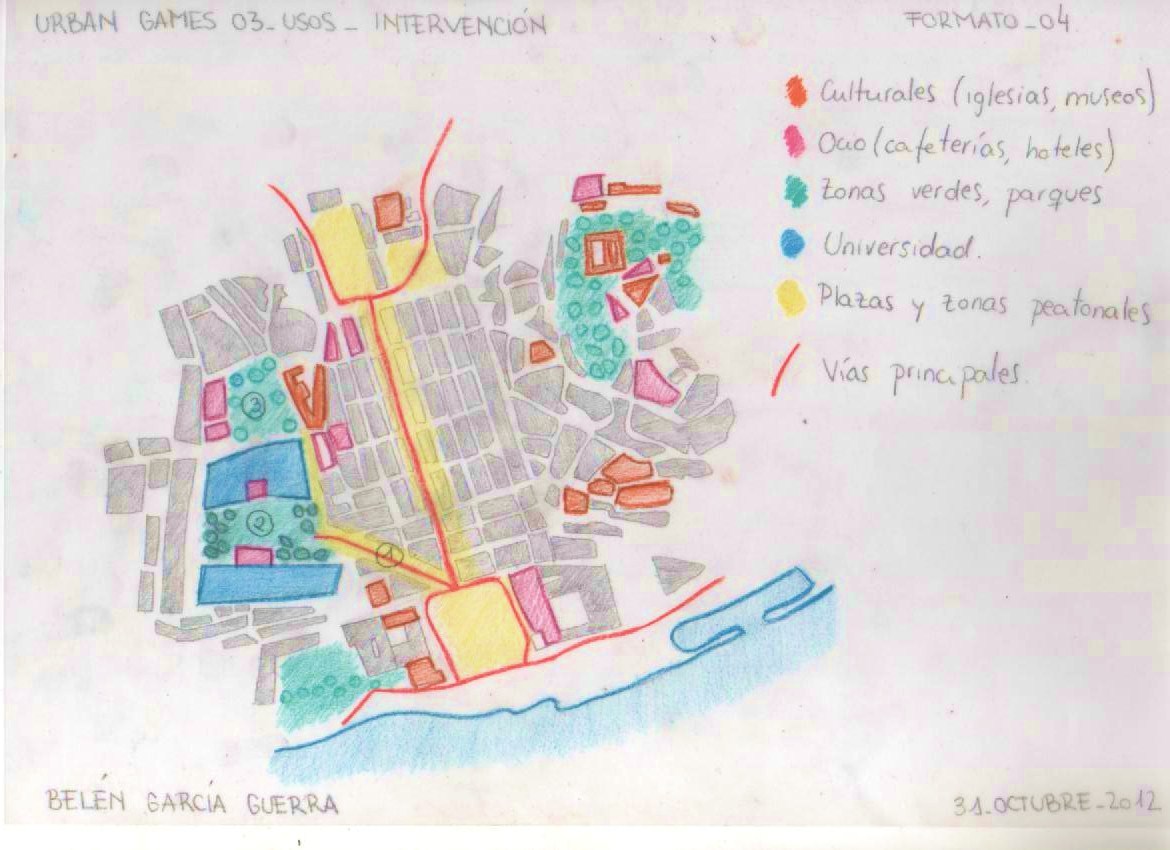 URBAN GAMES 03_USOS_ INTERVENCIÓN
FORMATO_04
Culturales (iglesias, museos)
Ocio (cafeterías, hoteles)
Zonas verdes, parques
Universidad.
Plazas y zonas peatonales
Vías principales.
3
2
1
BELÉN GARCÍA GUERRA
31_OCTUBRE_2012